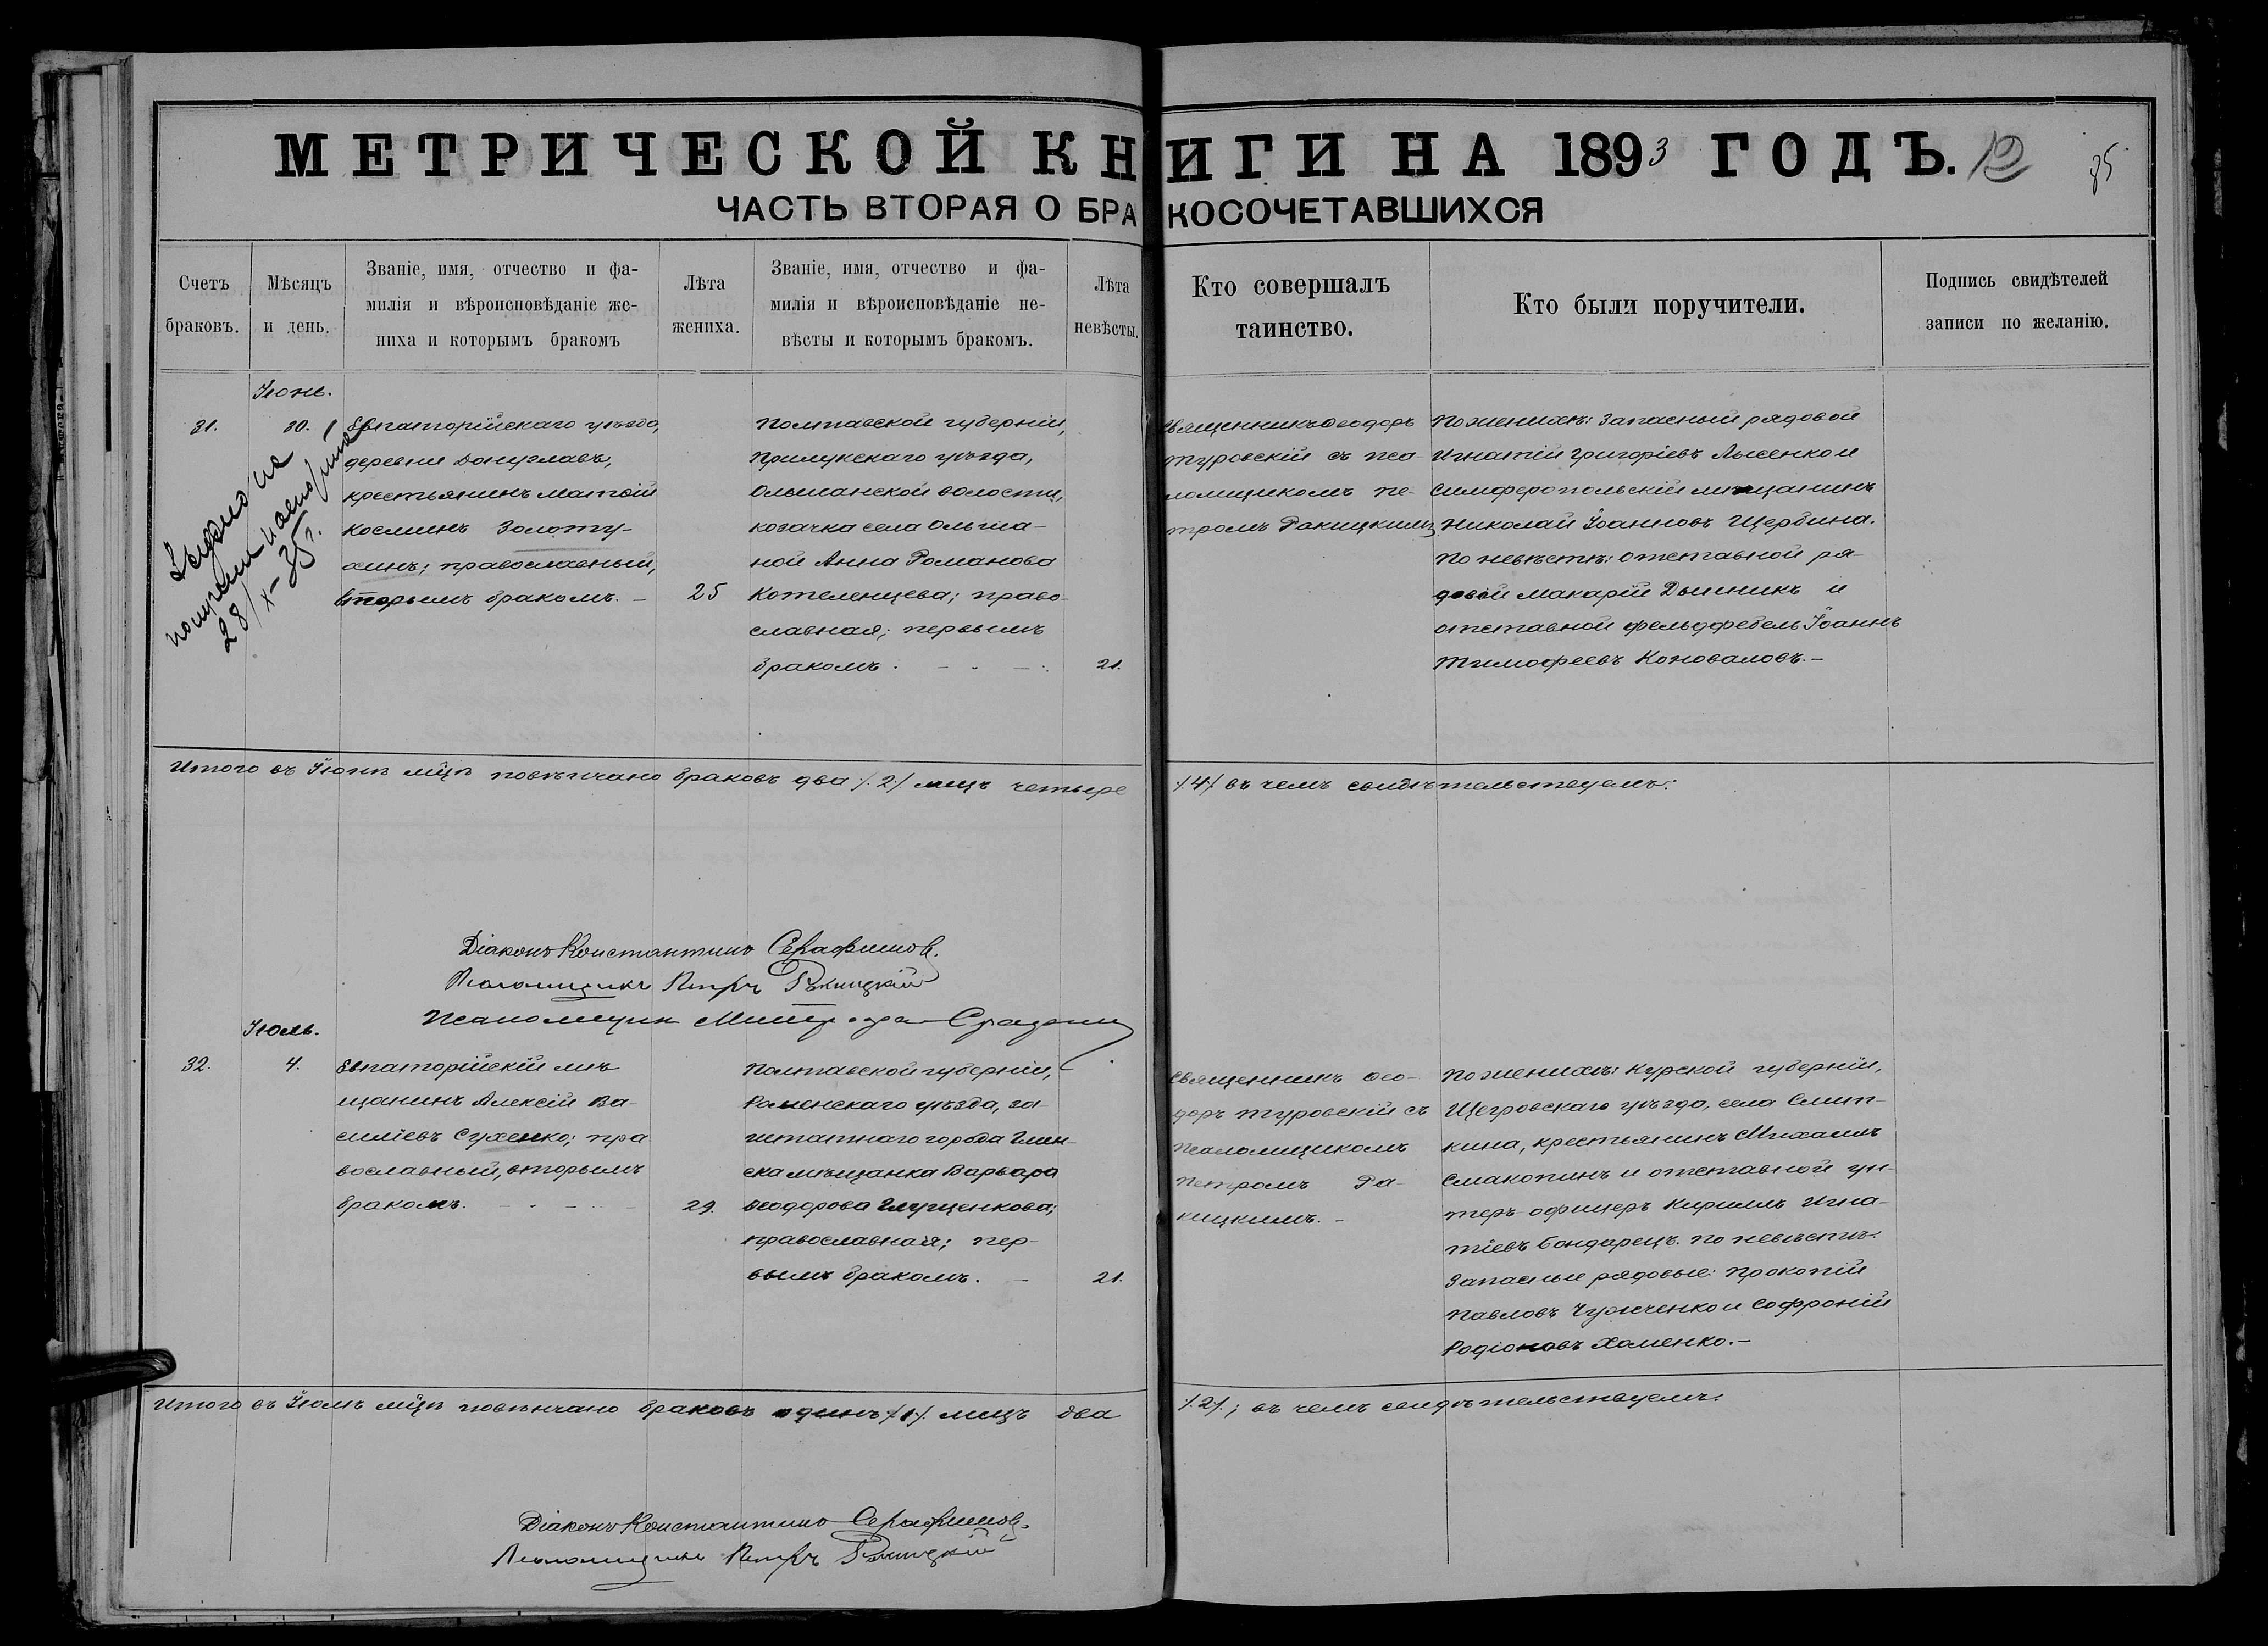 МЕТРИЧЕСКОЙ КНИГИ НА 1893 ГОДЪ.
12
85
ЧАСТЬ ВТОРАЯ О БРАКОСОЧЕТАВШИХСЯ
Счетъ браковъ.
Мѣсяцъ и день.
Званіе, имя, отчество и фа-
милія и вѣроисповѣданіе же-
ниха и которымъ бракомъ
Лѣта жениха.
Званіе, имя, отчество и фа-
милія и вѣроисповѣданіе не-
вѣсты и которымъ бракомъ.
Лѣта невѣсты.
Кто совершалъ
таинство.
Кто были поручители.
Подпись свидѣтелей
записи по желанію.
Іюнь.
31.
30.
28/X-35 г.
Евпаторійскаго уѣзда,
деревни Донузлавъ,
крестьянинъ Матѳій
Косминъ Золоту-
хинъ; православный,
вторымъ бракомъ. –
25
Полтавской губерніи,
Прилукскаго уѣзда,
Ольшанской волости,
козачка села Ольша-
ной Анна Романова
Котеленцева; право-
славная; первымъ
бракомъ.
21.
Священникъ Ѳеодоръ
Туровскій съ пса-
ломщикомъ Пе-
тромъ Ракицкимъ
По женихѣ: Запасный рядовой
Игнатій Григоріевъ Лысенко и
Симферопольскій мѣщанинъ
Николай Іоанновъ Щербина.
По невѣстѣ: отставной ря-
довой Макарій Дынникъ и
отставной фельдфебель Іоаннъ
Тимофеевъ Коноваловъ. –
Итого въ Іюнѣ мцѣ повѣнчано браковъ два /.2/. лицъ четыре /.4/. въ чемъ свидѣтельствуемъ:
Діаконъ Константинъ Серафимов.
Псаломщикъ Петръ Ракицкій
Псаломщик
Іюль.
32.
4.
Евпаторійскій мѣ-
щанинъ Алексій Ва-
силіевъ Сухенко; пра-
вославный, вторымъ
бракомъ.
29.
Полтавской губерніи,
Роменскаго уѣзда, за-
штатнаго города Глин-
ска мѣщанка Варвара
Ѳеодорова Глущенкова;
православная; пер-
вымъ бракомъ. –
21.
Священникъ Ѳео-
доръ Туровскій съ
Псаломщикомъ
Петромъ Ра-
кицкимъ. –
По женихѣ: Курской губерніи,
Щегровскаго уѣзда, села Смит-
кина, крестьянинъ Михаилъ
Смакотинъ и отставной ун-
теръ-офицеръ Кириллъ Игна-
тіевъ Бондарецъ. По невѣстѣ:
Запасные рядовые: Прокопій
Павловъ Чужченко и Софроній
Родіоновъ Хоменко. –
Итого въ Іюлѣ мцѣ повѣнчано браковъ одинъ /.1/. лицъ два /.2/.; въ чемъ свидѣтельствуемъ:
Діаконъ Константинъ Серафимов.
Псаломщикъ Петръ Ракицкій